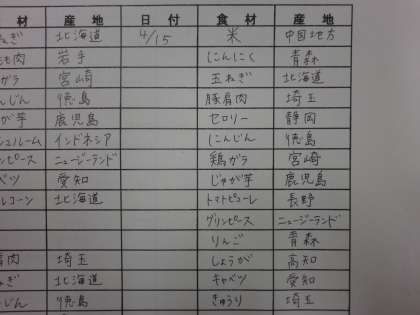 材 産地 日付 食材 産地
ねぎ 北海道 4/15 米 中国地方
肉 岩手 にんにく 青森
ガラ 宮崎 玉ねぎ 北海道
んじん 徳島 豚肩肉 埼玉
が芋 鹿児島 セロリー 静岡
シュルーム インドネシア にんじん 徳島
ンピース ニュージーランド 鶏ガラ 宮崎
ベツ 愛知 じゃが芋 鹿児島
ルコーン 北海道 トマトピューレ 長野
グリンピース ニュージーランド
りんご 青森
肩肉 埼玉 しょうが 高知
ねぎ 北海道 キャベツ 愛知
んじん 徳島 きゅうり 埼玉